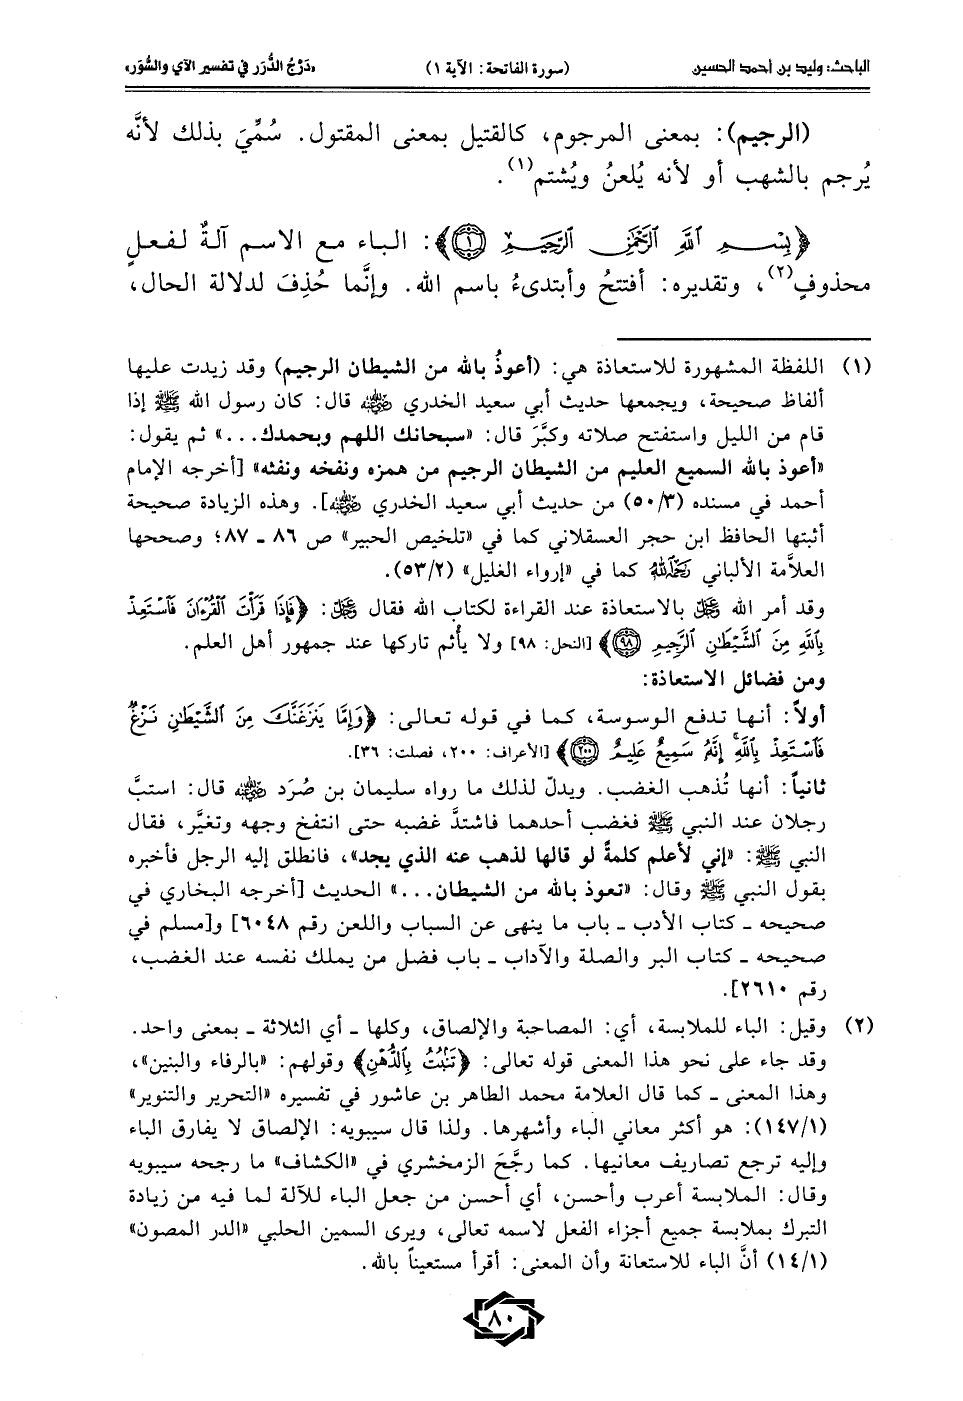 الباحث: وليد بن أحمد الحسين (سورة الفاتحة: الآية ١) «دَرْجُ الدُّرَر في تفسير الآي والسُّوَر»
(الرجيم): بمعنى المرجوم، كالقتيل بمعنى المقتول. سُمِّيَ بذلك لأنَّه
يُرجم بالشهب أو لأنه يُلعنُ ويُشتم(١).
﴿بِسْمِ ٱللَّهِ ٱلرَّحْمَٰنِ ٱلرَّحِيمِ ١﴾: الباء مع الاسم آلةٌ لفعلٍ
محذوفٍ(٢)، وتقديره: أفتتحُ وأبتدىءُ باسم الله. وإنَّما حُذِفَ لدلالة الحال،
(١) اللفظة المشهورة للاستعاذة هي: (أعوذُ بالله من الشيطان الرجيم) وقد زيدت عليها
ألفاظ صحيحة، ويجمعها حديث أبي سعيد الخدري رضي الله عنه قال: كان رسول الله ﷺ إذا
قام من الليل واستفتح صلاته وكبَّرَ قال: «سبحانك اللهم وبحمدك...» ثم يقول:
«أعوذ بالله السميع العليم من الشيطان الرجيم من همزه ونفخه ونفثه» [أخرجه الإمام
أحمد في مسنده (٥٠/٣) من حديث أبي سعيد الخدري رضي الله عنه]. وهذه الزيادة صحيحة
أثبتها الحافظ ابن حجر العسقلاني كما في «تلخيص الحبير» ص ٨٦ ـ ٨٧؛ وصححها
العلاَّمة الألباني رحمه الله كما في «إرواء الغليل» (٥٣/٢).
وقد أمر الله ﷻ بالاستعاذة عند القراءة لكتاب الله فقال ﷻ: ﴿فَإِذَا قَرَأْتَ ٱلْقُرْءَانَ فَٱسْتَعِذْ
بِٱللَّهِ مِنَ ٱلشَّيْطَٰنِ ٱلرَّجِيمِ ٩٨﴾ [النحل: ٩٨] ولا يأْثم تاركها عند جمهور أهل العلم.
ومن فضائل الاستعاذة:
أولاً: أنها تدفع الوسوسة، كما في قوله تعالى: ﴿وَإِمَّا يَنزَغَنَّكَ مِنَ ٱلشَّيْطَٰنِ نَزْغٌ
فَٱسْتَعِذْ بِٱللَّهِ إِنَّهُ سَمِيعٌ عَلِيمٌ ٢٠٠﴾ [الأعراف: ٢٠٠، فصلت: ٣٦].
ثانياً: أنها تُذهب الغضب. ويدلّ لذلك ما رواه سليمان بن صُرَد رضي الله عنه قال: استبَّ
رجلان عند النبي ﷺ فغضب أحدهما فاشتدَّ غضبه حتى انتفخ وجهه وتغيَّر، فقال
النبي ﷺ: «إني لأعلم كلمةً لو قالها لذهب عنه الذي يجد»، فانطلق إليه الرجل فأخبره
بقول النبي ﷺ وقال: «تعوذ بالله من الشيطان...» الحديث [أخرجه البخاري في
صحيحه ـ كتاب الأدب ـ باب ما ينهى عن السباب واللعن رقم ٦٠٤٨] و[مسلم في
صحيحه ـ كتاب البر والصلة والآداب ـ باب فضل من يملك نفسه عند الغضب،
رقم ٢٦١٠].
(٢) وقيل: الباء للملابسة، أي: المصاحبة والإلصاق، وكلها ـ أي الثلاثة ـ بمعنى واحد.
وقد جاء على نحو هذا المعنى قوله تعالى: ﴿تَنۢبُتُ بِٱلدُّهْنِ﴾ وقولهم: «بالرفاء والبنين»،
وهذا المعنى ـ كما قال العلامة محمد الطاهر بن عاشور في تفسيره «التحرير والتنوير»
(١٤٧/١): هو أكثر معاني الباء وأشهرها. ولذا قال سيبويه: الإلصاق لا يفارق الباء
وإليه ترجع تصاريف معانيها. كما رجَّحَ الزمخشري في «الكشاف» ما رجحه سيبويه
وقال: الملابسة أعرب وأحسن، أي أحسن من جعل الباء للآلة لما فيه من زيادة
التبرك بملابسة جميع أجزاء الفعل لاسمه تعالى، ويرى السمين الحلبي «الدر المصون»
(١٤/١) أنَّ الباء للاستعانة وأن المعنى: أقرأ مستعيناً بالله.
٨٠